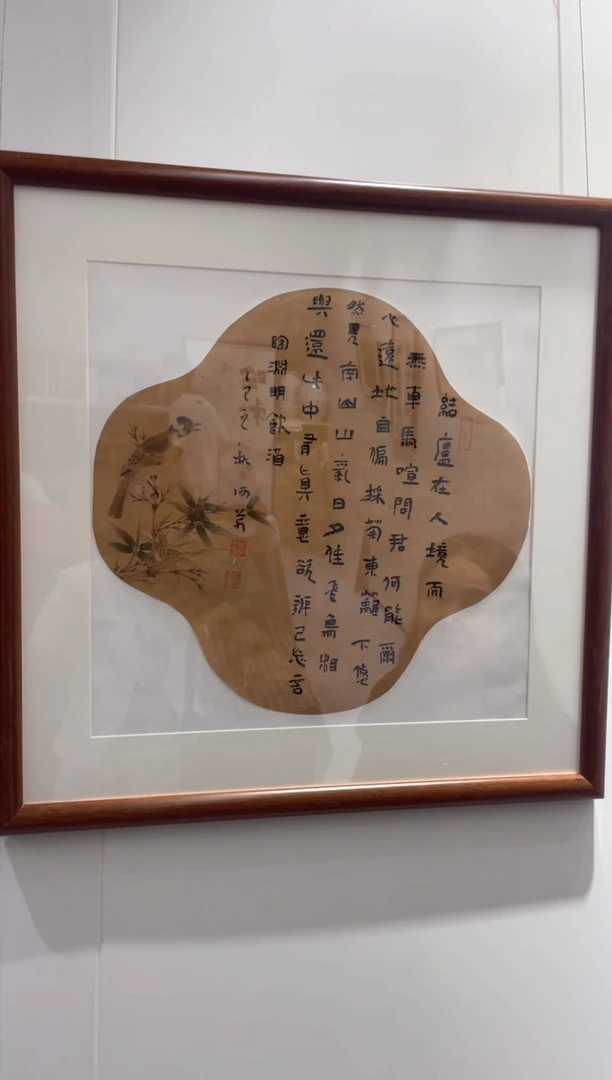 結廬在人境而
無車馬喧問君何能爾
心遠地自偏採菊東籬下悠
然見南山山氣日夕佳飛鳥相
與還此中有真意欲辨已忘言
陶淵明飲酒
乙巳之秋